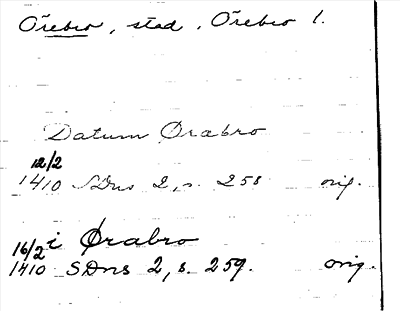 Örebro, stad, Örebro l.
Datum Ørabro
12/2
1410 SDns 2, s. 258 orig.
16/2 i Ørabro
1410 SDns 2, s. 259. orig.